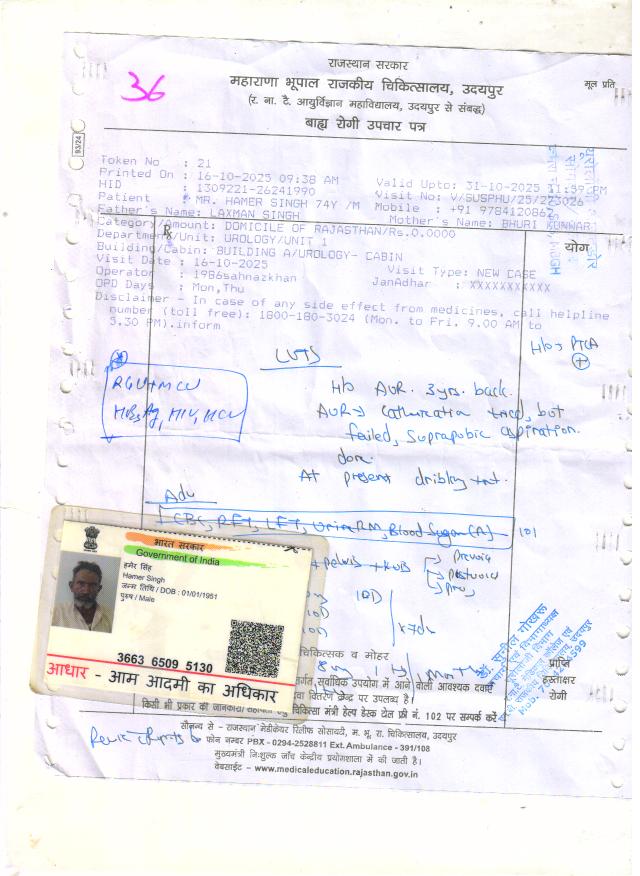 राजस्थान सरकार
महाराणा भूपाल राजकीय चिकित्सालय, उदयपुर
मूल प्रति
(र. ना. टै. आयुर्विज्ञान महाविद्यालय, उदयपुर से संबद्ध)
बाह्य रोगी उपचार पत्र
36
93/24
Token No : 21
Printed On : 16-10-2025 09:38 AM Valid Upto: 31-10-2025 11:59 PM
HID : 1309221-26241990 Visit No: V/SUSPHU/25/223026
Patient : MR. HAMER SINGH 74Y /M Mobile : +91 9784120862
Father's Name: LAXMAN SINGH Mother's Name: BHURI KUNWAR
Category/Amount: DOMICILE OF RAJASTHAN/Rs.0.0000
Department/Unit: UROLOGY/UNIT 1
योग
Building/Cabin: BUILDING A/UROLOGY- CABIN
Visit Date : 16-10-2025 Visit Type: NEW CASE
Operator : 1986sahnazkhan JanAdhar : XXXXXXXXXXX
OPD Days : Mon,Thu
Disclaimer - In case of any side effect from medicines, call helpline
number (toll free): 1800-180-3024 (Mon. to Fri. 9.00 AM to
5.30 PM).inform
H/o PTCA
LUTS
RGU+MCU
HBsAg, HIV, HCV
H/o AUR. 3yrs. back.
AUR → catheterization tried, but
failed, Suprapubic aspiration
done.
At present dribbling +nt.
Adv
CBC, RFT, LFT, Urine RM, Blood Sugar (R)
+ pelvis + KUB
Prevoid
Postvoid
x 7 day
चिकित्सक व मोहर
सर्वाधिक उपयोग में आने वाली आवश्यक दवाएं
वितरण केन्द्र पर उपलब्ध है।
प्राप्ति
हस्ताक्षर
रोगी
किसी भी प्रकार की जानकारी चिकित्सा मंत्री हेल्प डेस्क टोल फ्री नं. 102 पर सम्पर्क करें
सौजन्य से - राजस्थान मेडीकेयर रिलीफ सोसायटी, म. भू. रा. चिकित्सालय, उदयपुर
फोन नम्बर PBX - 0294-2528811 Ext. Ambulance - 391/108
मुख्यमंत्री निःशुल्क जाँच केन्द्रीय प्रयोगशाला में की जाती है।
वेबसाईट – www.medicaleducation.rajasthan.gov.in
भारत सरकार
Government of India
हमेर सिंह
Hamer Singh
जन्म तिथि / DOB : 01/01/1951
पुरुष / Male
3663 6509 5130
आधार - आम आदमी का अधिकार